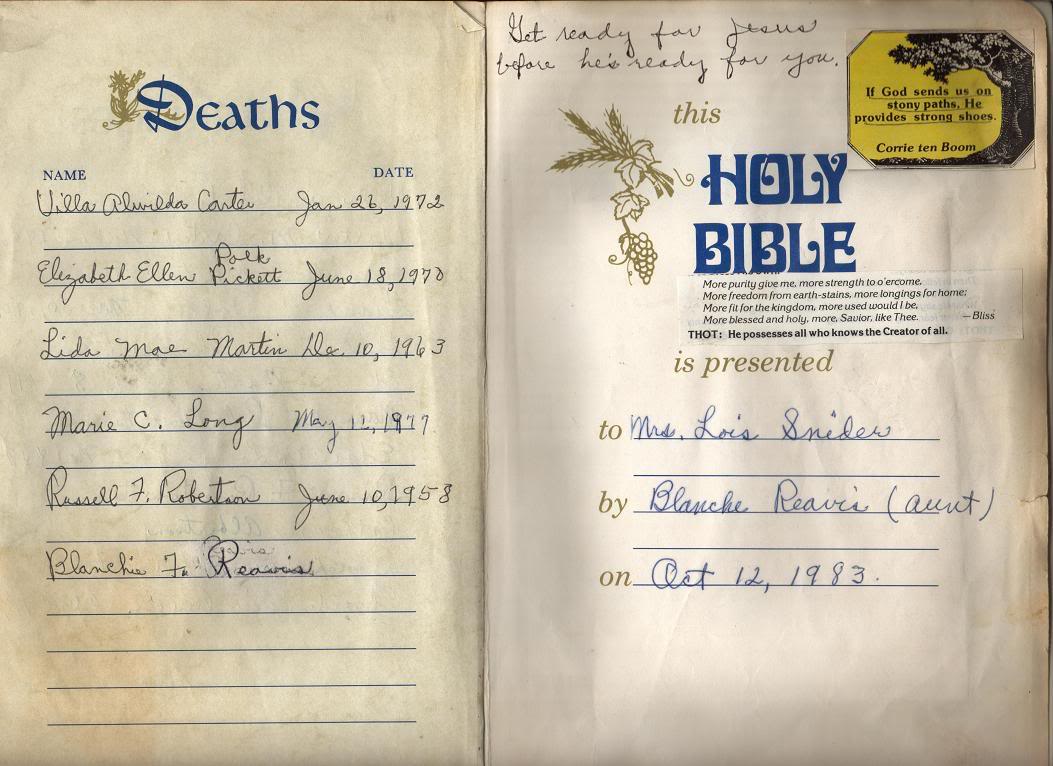 Deaths
NAME DATE
Villa Alwilda Carter Jan 26, 1972
Polk
Elizabeth Ellen Pickett June 18, 1970
Lida Mae Martin Dec 10, 1963
Marie C. Long May 11, 1977
Russell F. Robertson June 10, 1958
Blanchie F. Reavis
Get ready for Jesus
before he's ready for you.
If God sends us on
stony paths, He
provides strong shoes.
Corrie ten Boom
this
HOLY
BIBLE
More purity give me, more strength to o'ercome,
More freedom from earth-stains, more longings for home;
More fit for the kingdom, more used would I be,
More blessed and holy, more, Savior, like Thee. —Bliss
THOT: He possesses all who knows the Creator of all.
is presented
to Mrs. Lois Snider
by Blanche Reavis (aunt)
on Oct 12, 1983.